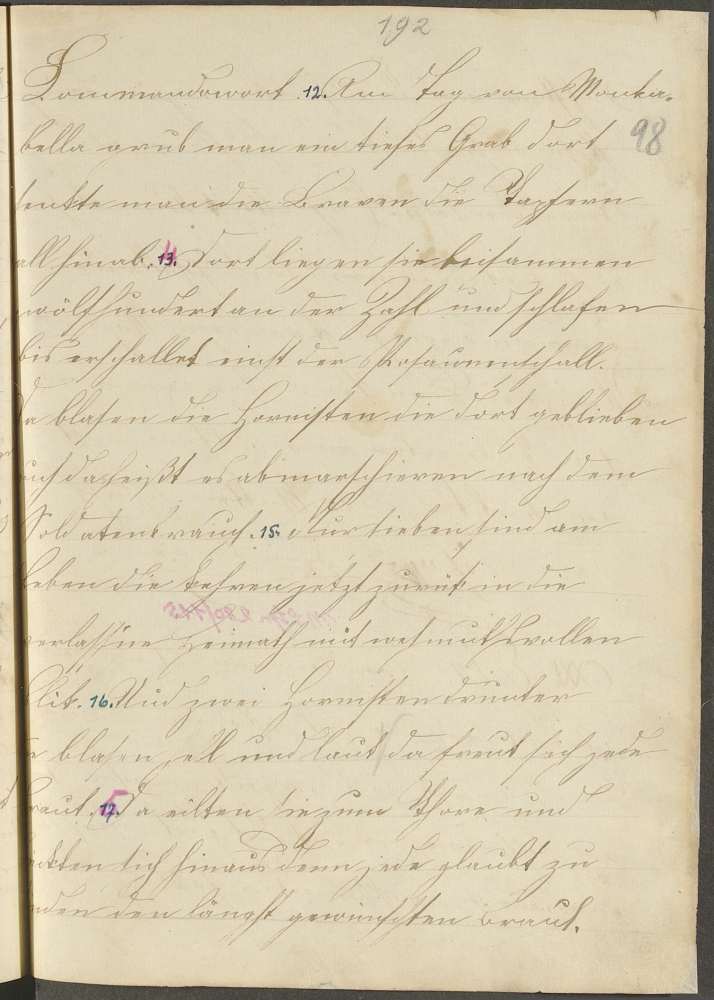 192
Commandowort. 12. Am Tag von Monta-
bella grub man ein tiefes Grab dort
98
senkte man die Braven die Tapfern
all hinab. 13. 4 Dort liegen sie beisammen
zwölfhundert an der Zahl und schlafen
bis erschallet einst der Posaunenschall.
Da blasen die Hornisten die dort geblieben
auch da heißt es abmarschieren nach dem
Soldatenbrauch. 15. Nur sieben sind am
Leben die kehren jetzt zurük in die
verlassne Heimath mit wehmuthsvollen
Blik. 16. Und zwei Hornisten drunter
blasen hell und laut da freut sich jede
Braut. 17. 5 Da eilten sie zum Thore und
blickten sich hinaus denn jede glaubt zu
finden den längst gewünschten Braut.